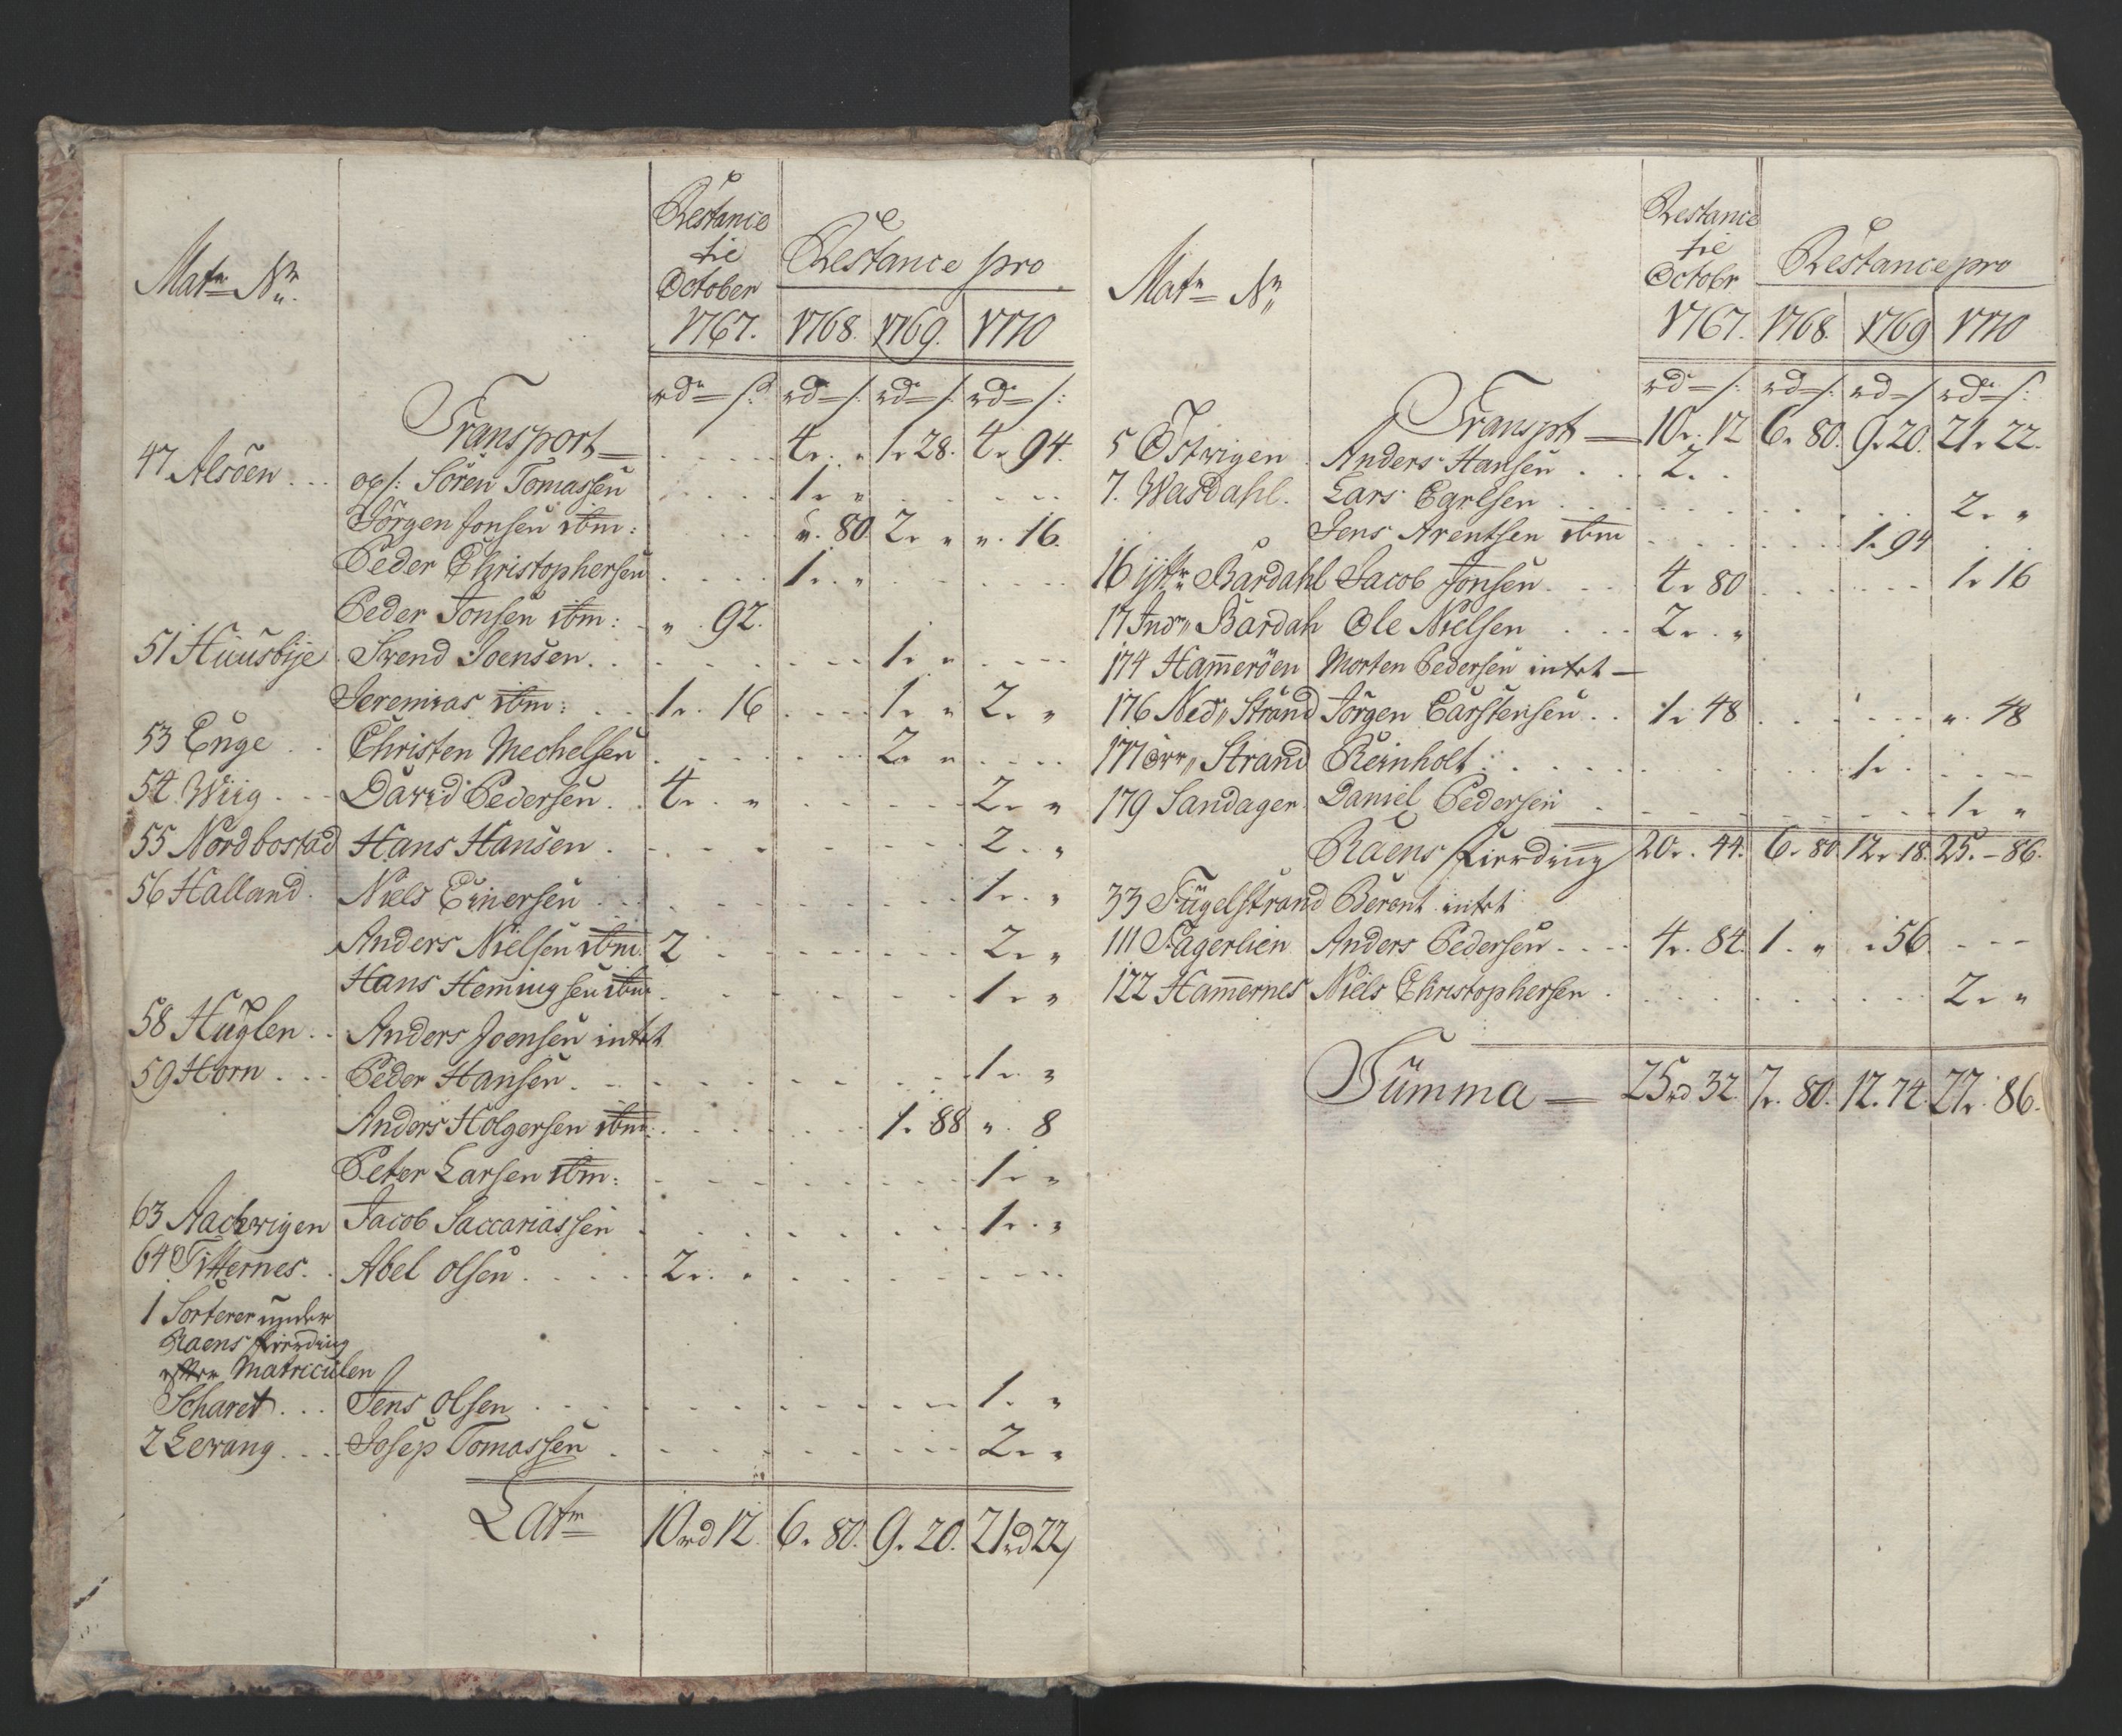 Restance
tie
October
Restance pro
Matr No.
1767. 1768. 1769. 1770
rdr = s: rd = s: rd = s: rd = s:
Transport = 4 " 1 " 28. 4 " 94.
47 Alsöen Sören Tomassen 1 "
Jörgen Jonsen ibm: " 80 2 " " 16.
Peder Christophersen 1 "
Peder Jonsen ibm: " 92.
51 Huusbije Svend Joensen 1 "
Jeremias ibm: 1 16 1 " 2 "
53 Enge Christen Mechelsen 2 "
54 Wiig David Pedersen 4 " 2 "
55 Nordbostad Hans Hansen 2 "
56 Halland Niels Einersen 1 "
Anders Nielsen ibm: 2 2 "
Hans Hemingsen ibm 1 "
58 Huglen Anders Joensen intet
59 Horn Peder Hansen 1 "
Anders Holgersen ibm: 1. 88 " 8
Peter Larsen ibm: 1 "
63 Aachvigen Jacob Saccariassen 1 "
64 Titternes Abel Olsen 2 "
1 Sorterer under
Raens fierding
efter Matriculen
Scharet Jens Olsen 1 "
2 Levang Josep Tomassen 2 "
Latr 10 rd 12. 6. 80. 9. 20. 21 rd 22
Restance
tie
Octobr
Restance pro
Matr No
1767. 1768. 1769 1770
rd = s: rd = s: rd = s rd = s:
Transpt = 10. 12 6. 80. 9. 20. 21. 22.
5 Östvigen Anders Hansen 2.
7. Wasdahl. Lars Carlsen 2 "
Jens Arentsen ibm 1. 94
16 ijttr Bardahl Jacob Jonsen 4. 80 1. 16
17 Indr Bardah Ole Nielsen 2 "
174 Hammeröen Morten Pedersen intet
176 Ned Strand Jörgen Carstensen 1. 48 " 48
177 övr Strand Reinholt 1.
179 Sandager Daniel Pedersen 1 "
Raens fierding 20. 44. 6. 80 12. 18. 25. 86.
33 Fugelstrand Berent intet
111 Fagerlien Anders Pedersen 4. 84. 1 " 56
122 Hammernes Niels Christophersen 2 "
Summa = 25 rd 32. 7. 80. 12. 74. 27. 86.